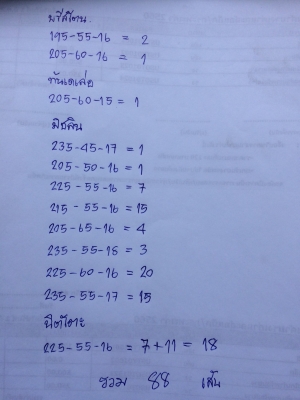 บรีสโตน
195-55-16 = 2
205-60-16 = 1
ดันลอป
205-60-15 = 1
มิชลิน
235-45-17 = 1
205-50-16 = 1
225-55-16 = 7
215-55-16 = 15
205-65-16 = 4
235-55-18 = 3
225-60-16 = 20
235-55-17 = 15
225-55-16 = 7+11 = 18
รวม 88 เส้น